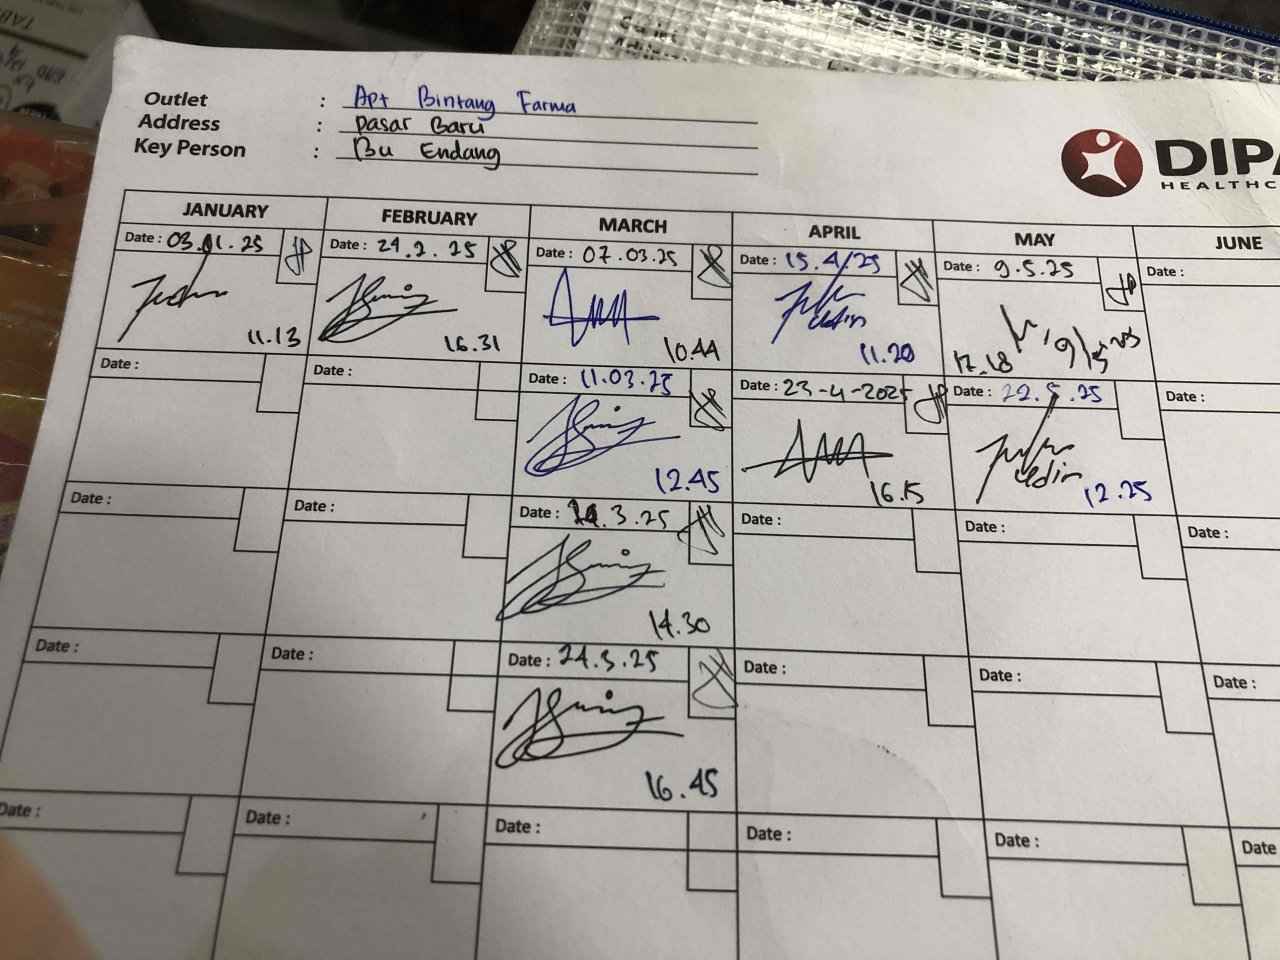 Outlet : Apt Bintang Farma
Address : Pasar Baru
Key Person : Bu Endang
DIPA
HEALTHC
JANUARY FEBRUARY MARCH APRIL MAY JUNE
Date : 03.01.25 Date : 24.2.25 Date : 07.03.25 Date : 15.4/25 Date : 9.5.25 Date :
11.13 16.31 10.44 11.20 17.18
Date : Date : Date : 11.03.25 Date : 23-4-2025 Date : 22.5.25 Date :
12.45 16.15 12.25
Date : Date : Date : .3.25 Date : Date : Date :
14.30
Date : Date : Date : 24.3.25 Date : Date : Date :
16.45
Date : Date : Date : Date : Date : Date